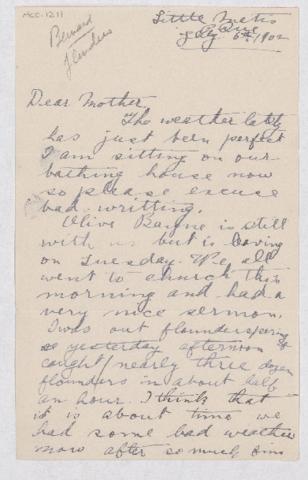 ACC-1211
Bernard
Flenders
Little Metis
Que
July 6th, 1902
Dear Mother,
The weather lately
has just been perfect
I am sitting on our
bathing house now
so please excuse
bad writting.
Olive Bayne is still
with us but is leaving
on Tuesday. We all
went to church this
morning and had a
very nice sermon.
I was out flounderspearing
yesterday afternoon &
caught nearly three dozen
flounders in about half
an hour. I think that
it is about time we
had some bad weather
now after so much fine